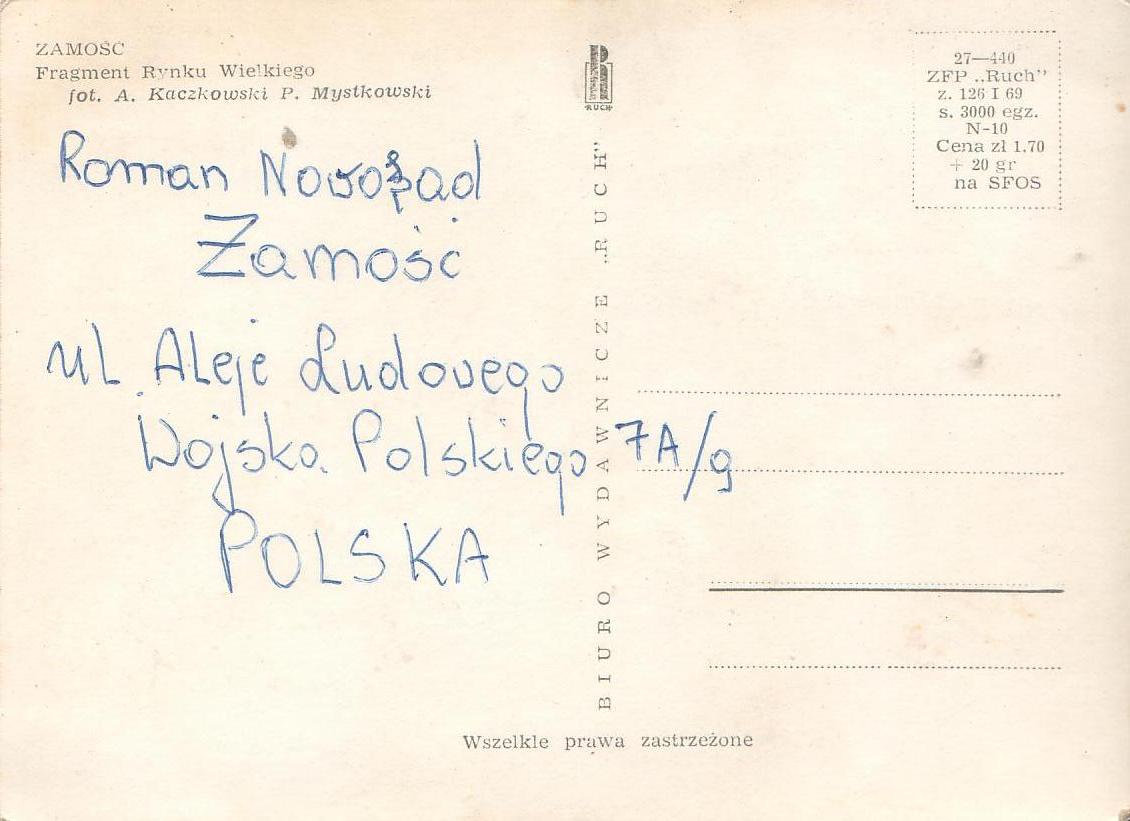 ZAMOŚĆ
Fragment Rynku Wielkiego
fot. A. Kaczkowski P. Mystkowski
RUCH
27—440
ZFP „Ruch”
z. 126 I 69
s. 3000 egz.
N-10
Cena zł 1.70
+ 20 gr
na SFOS
Roman Novosad
Zamość
ul. Aleje Ludovego
Wojska Polskiego 7A/9
POLSKA
BIURO WYDAWNICZE „RUCH”
Wszelkie prawa zastrzeżone